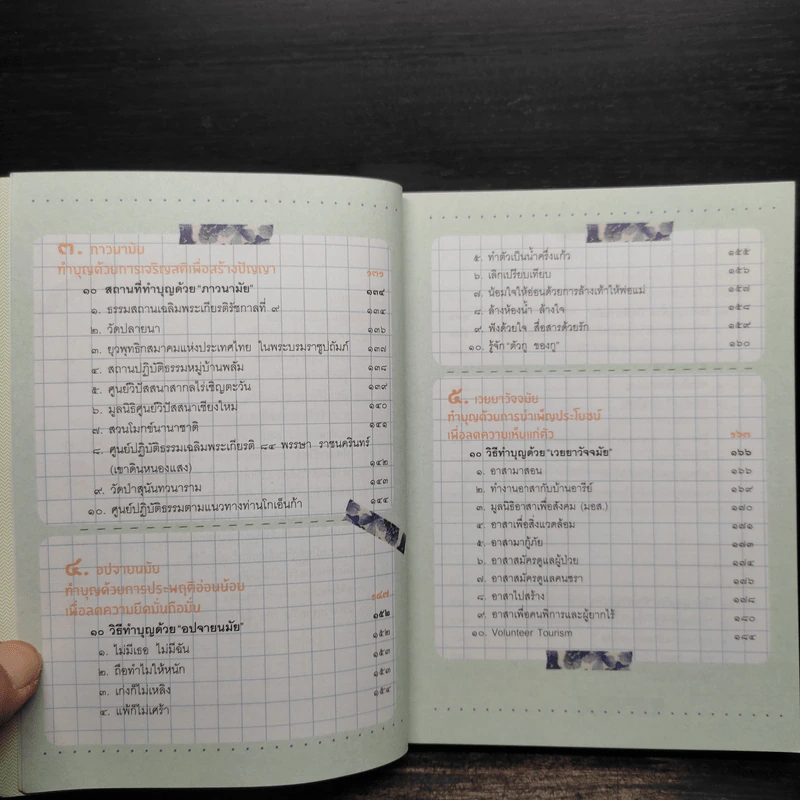 ๓. ภาวนามัย
ทำบุญด้วยการเจริญสติเพื่อสร้างปัญญา ๑๓๑
๑๐ สถานที่ทำบุญด้วย "ภาวนามัย" ๑๓๔
๑. ธรรมสถานเฉลิมพระเกียรติรัชกาลที่ ๙ ๑๓๕
๒. วัดปลายนา ๑๓๖
๓. ยุวพุทธิกสมาคมแห่งประเทศไทย ในพระบรมราชูปถัมภ์ ๑๓๗
๔. สถานปฏิบัติธรรมหมู่บ้านพลัม ๑๓๘
๕. ศูนย์วิปัสสนาสากลไร่เชิญตะวัน ๑๓๙
๖. มูลนิธิศูนย์วิปัสสนาเชียงใหม่ ๑๔๐
๗. สวนโมกข์นานาชาติ ๑๔๑
๘. ศูนย์ปฏิบัติธรรมเฉลิมพระเกียรติ ๘๔ พรรษา ราชนครินทร์
(เขาดินหนองแสง) ๑๔๒
๙. วัดป่าสุนันทวนาราม ๑๔๓
๑๐. ศูนย์ปฏิบัติธรรมตามแนวทางท่านโกเอ็นก้า ๑๔๔
๔. อปจายนมัย
ทำบุญด้วยการประพฤติอ่อนน้อม
เพื่อลดความยึดมั่นถือมั่น ๑๔๗
๑๐ วิธีทำบุญด้วย "อปจายนมัย" ๑๕๒
๑. ไม่มีเธอ ไม่มีฉัน ๑๕๒
๒. ถือทำไมให้หนัก ๑๕๓
๓. เก่งก็ไม่เหลิง ๑๕๓
๔. แพ้ก็ไม่เศร้า ๑๕๔
๕. ทำตัวเป็นน้ำครึ่งแก้ว ๑๕๕
๖. เลิกเปรียบเทียบ ๑๕๖
๗. น้อมใจให้อ่อนด้วยการล้างเท้าให้พ่อแม่ ๑๕๗
๘. ล้างห้องน้ำ ล้างใจ ๑๕๘
๙. ฟังด้วยใจ สื่อสารด้วยรัก ๑๕๙
๑๐. รู้จัก "ตัวกู ของกู" ๑๖๐
๕. เวยยาวัจจมัย
ทำบุญด้วยการบำเพ็ญประโยชน์
เพื่อลดความเห็นแก่ตัว ๑๖๓
๑๐ วิธีทำบุญด้วย "เวยยาวัจจมัย" ๑๖๖
๑. อาสามาสอน ๑๖๖
๒. ทำงานอาสากับบ้านอารีย์ ๑๖๙
๓. มูลนิธิอาสาเพื่อสังคม (มอส.) ๑๗๐
๔. อาสาเพื่อสิ่งแวดล้อม ๑๗๑
๕. อาสามากู้ภัย ๑๗๓
๖. อาสาสมัครดูแลผู้ป่วย ๑๗๔
๗. อาสาสมัครดูแลคนชรา ๑๗๖
๘. อาสาไปสร้าง ๑๗๘
๙. อาสาเพื่อคนพิการและผู้ยากไร้ ๑๘๐
๑๐. Volunteer Tourism ๑๘๔